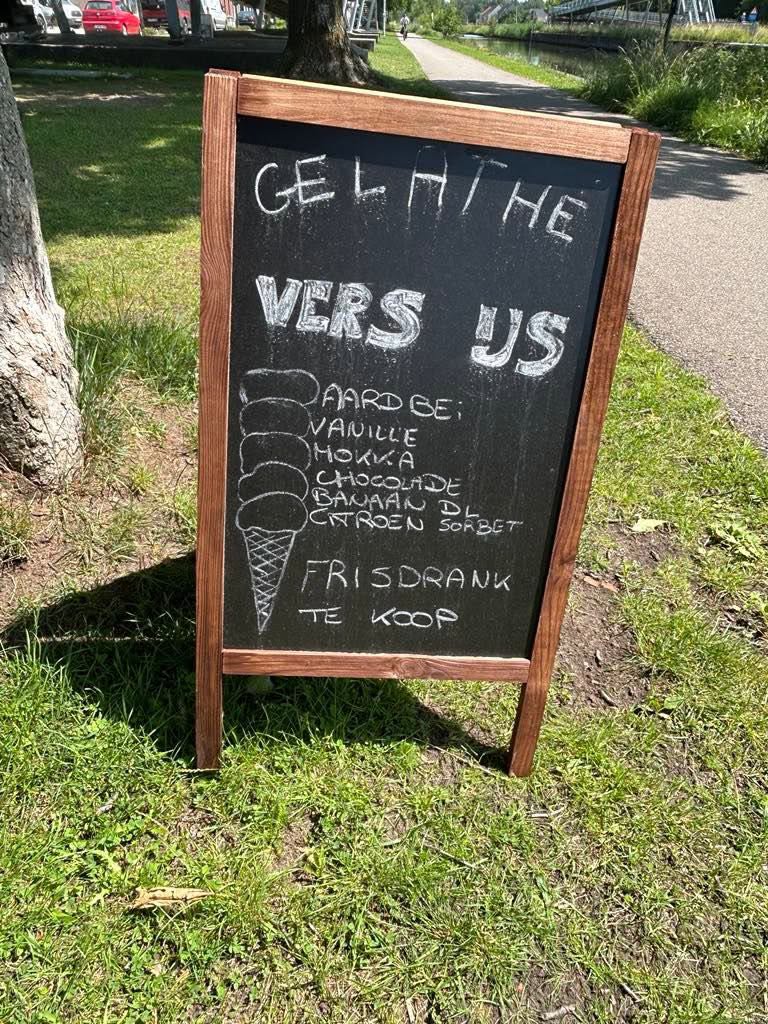 GELATHE
VERS IJS
AARDBEi
VANILLE
MOKKA
CHOCOLADE
BANAAN DL
CITROEN SORBET
FRISDRANK
TE KOOP